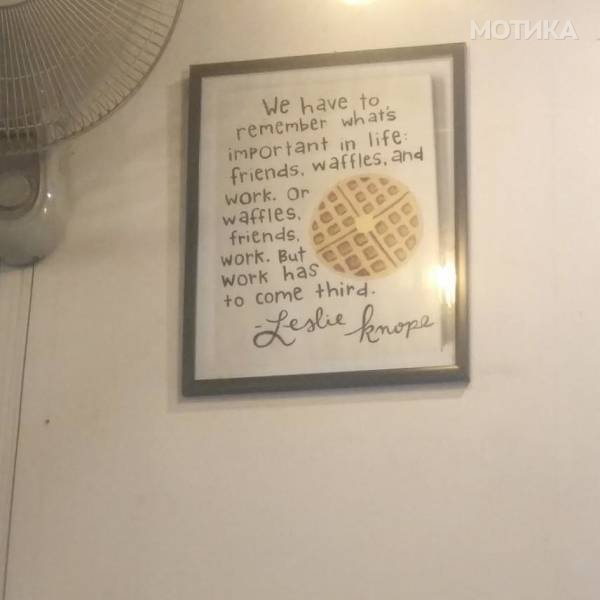 МОТИКА
We have to
remember what's
important in life:
friends, waffles, and
work. Or
waffles,
friends,
work. But
work has
to come third.
-Leslie Knope